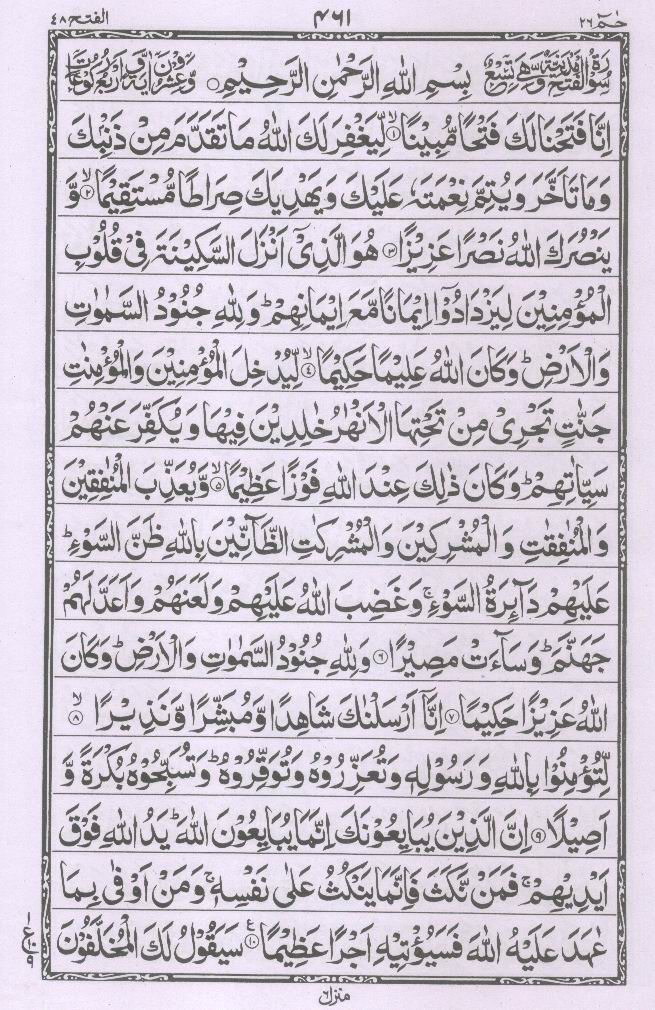 حٰمٓ ٢٦
٤٦١
الفتح ٤٨
سُوْرَةُ الْفَتْحِ مَدَنِيَّةٌ وَّهِيَ تِسْعٌ بِسْمِ اللّٰهِ الرَّحْمٰنِ الرَّحِيْمِ ○ وَّعِشْرُوْنَ اٰيَةً وَّاَرْبَعُ رُكُوْعَاتٍ
اِنَّا فَتَحْنَا لَكَ فَتْحًا مُّبِيْنًا ۙ﴿١﴾ لِّيَغْفِرَ لَكَ اللّٰهُ مَا تَقَدَّمَ مِنْ ذَنْۢبِكَ
وَمَا تَاَخَّرَ وَيُتِمَّ نِعْمَتَهٗ عَلَيْكَ وَيَهْدِيَكَ صِرَاطًا مُّسْتَقِيْمًا ۙ﴿٢﴾ وَّ
يَنْصُرَكَ اللّٰهُ نَصْرًا عَزِيْزًا ﴿٣﴾ هُوَ الَّذِيْٓ اَنْزَلَ السَّكِيْنَةَ فِيْ قُلُوْبِ
الْمُؤْمِنِيْنَ لِيَزْدَادُوْٓا اِيْمَانًا مَّعَ اِيْمَانِهِمْ ؕ وَلِلّٰهِ جُنُوْدُ السَّمٰوٰتِ
وَالْاَرْضِ ؕ وَكَانَ اللّٰهُ عَلِيْمًا حَكِيْمًا ۙ﴿٤﴾ لِّيُدْخِلَ الْمُؤْمِنِيْنَ وَالْمُؤْمِنٰتِ
جَنّٰتٍ تَجْرِيْ مِنْ تَحْتِهَا الْاَنْهٰرُ خٰلِدِيْنَ فِيْهَا وَيُكَفِّرَ عَنْهُمْ
سَيِّاٰتِهِمْ ؕ وَكَانَ ذٰلِكَ عِنْدَ اللّٰهِ فَوْزًا عَظِيْمًا ۙ﴿٥﴾ وَّيُعَذِّبَ الْمُنٰفِقِيْنَ
وَالْمُنٰفِقٰتِ وَالْمُشْرِكِيْنَ وَالْمُشْرِكٰتِ الظَّآنِّيْنَ بِاللّٰهِ ظَنَّ السَّوْءِ ؕ
عَلَيْهِمْ دَآئِرَةُ السَّوْءِ ۚ وَغَضِبَ اللّٰهُ عَلَيْهِمْ وَلَعَنَهُمْ وَاَعَدَّ لَهُمْ
جَهَنَّمَ ؕ وَسَآءَتْ مَصِيْرًا ﴿٦﴾ وَلِلّٰهِ جُنُوْدُ السَّمٰوٰتِ وَالْاَرْضِ ؕ وَكَانَ
اللّٰهُ عَزِيْزًا حَكِيْمًا ﴿٧﴾ اِنَّآ اَرْسَلْنٰكَ شَاهِدًا وَّمُبَشِّرًا وَّنَذِيْرًا ۙ﴿٨﴾
لِّتُؤْمِنُوْا بِاللّٰهِ وَرَسُوْلِهٖ وَتُعَزِّرُوْهُ وَتُوَقِّرُوْهُ ؕ وَتُسَبِّحُوْهُ بُكْرَةً وَّ
اَصِيْلًا ﴿٩﴾ اِنَّ الَّذِيْنَ يُبَايِعُوْنَكَ اِنَّمَا يُبَايِعُوْنَ اللّٰهَ ؕ يَدُ اللّٰهِ فَوْقَ
اَيْدِيْهِمْ ۚ فَمَنْ نَّكَثَ فَاِنَّمَا يَنْكُثُ عَلٰى نَفْسِهٖ ۚ وَمَنْ اَوْفٰى بِمَا
عٰهَدَ عَلَيْهُ اللّٰهَ فَسَيُؤْتِيْهِ اَجْرًا عَظِيْمًا ﴿١٠﴾ؑ سَيَقُوْلُ لَكَ الْمُخَلَّفُوْنَ
١
ع ١٠
٩
منزل ٦